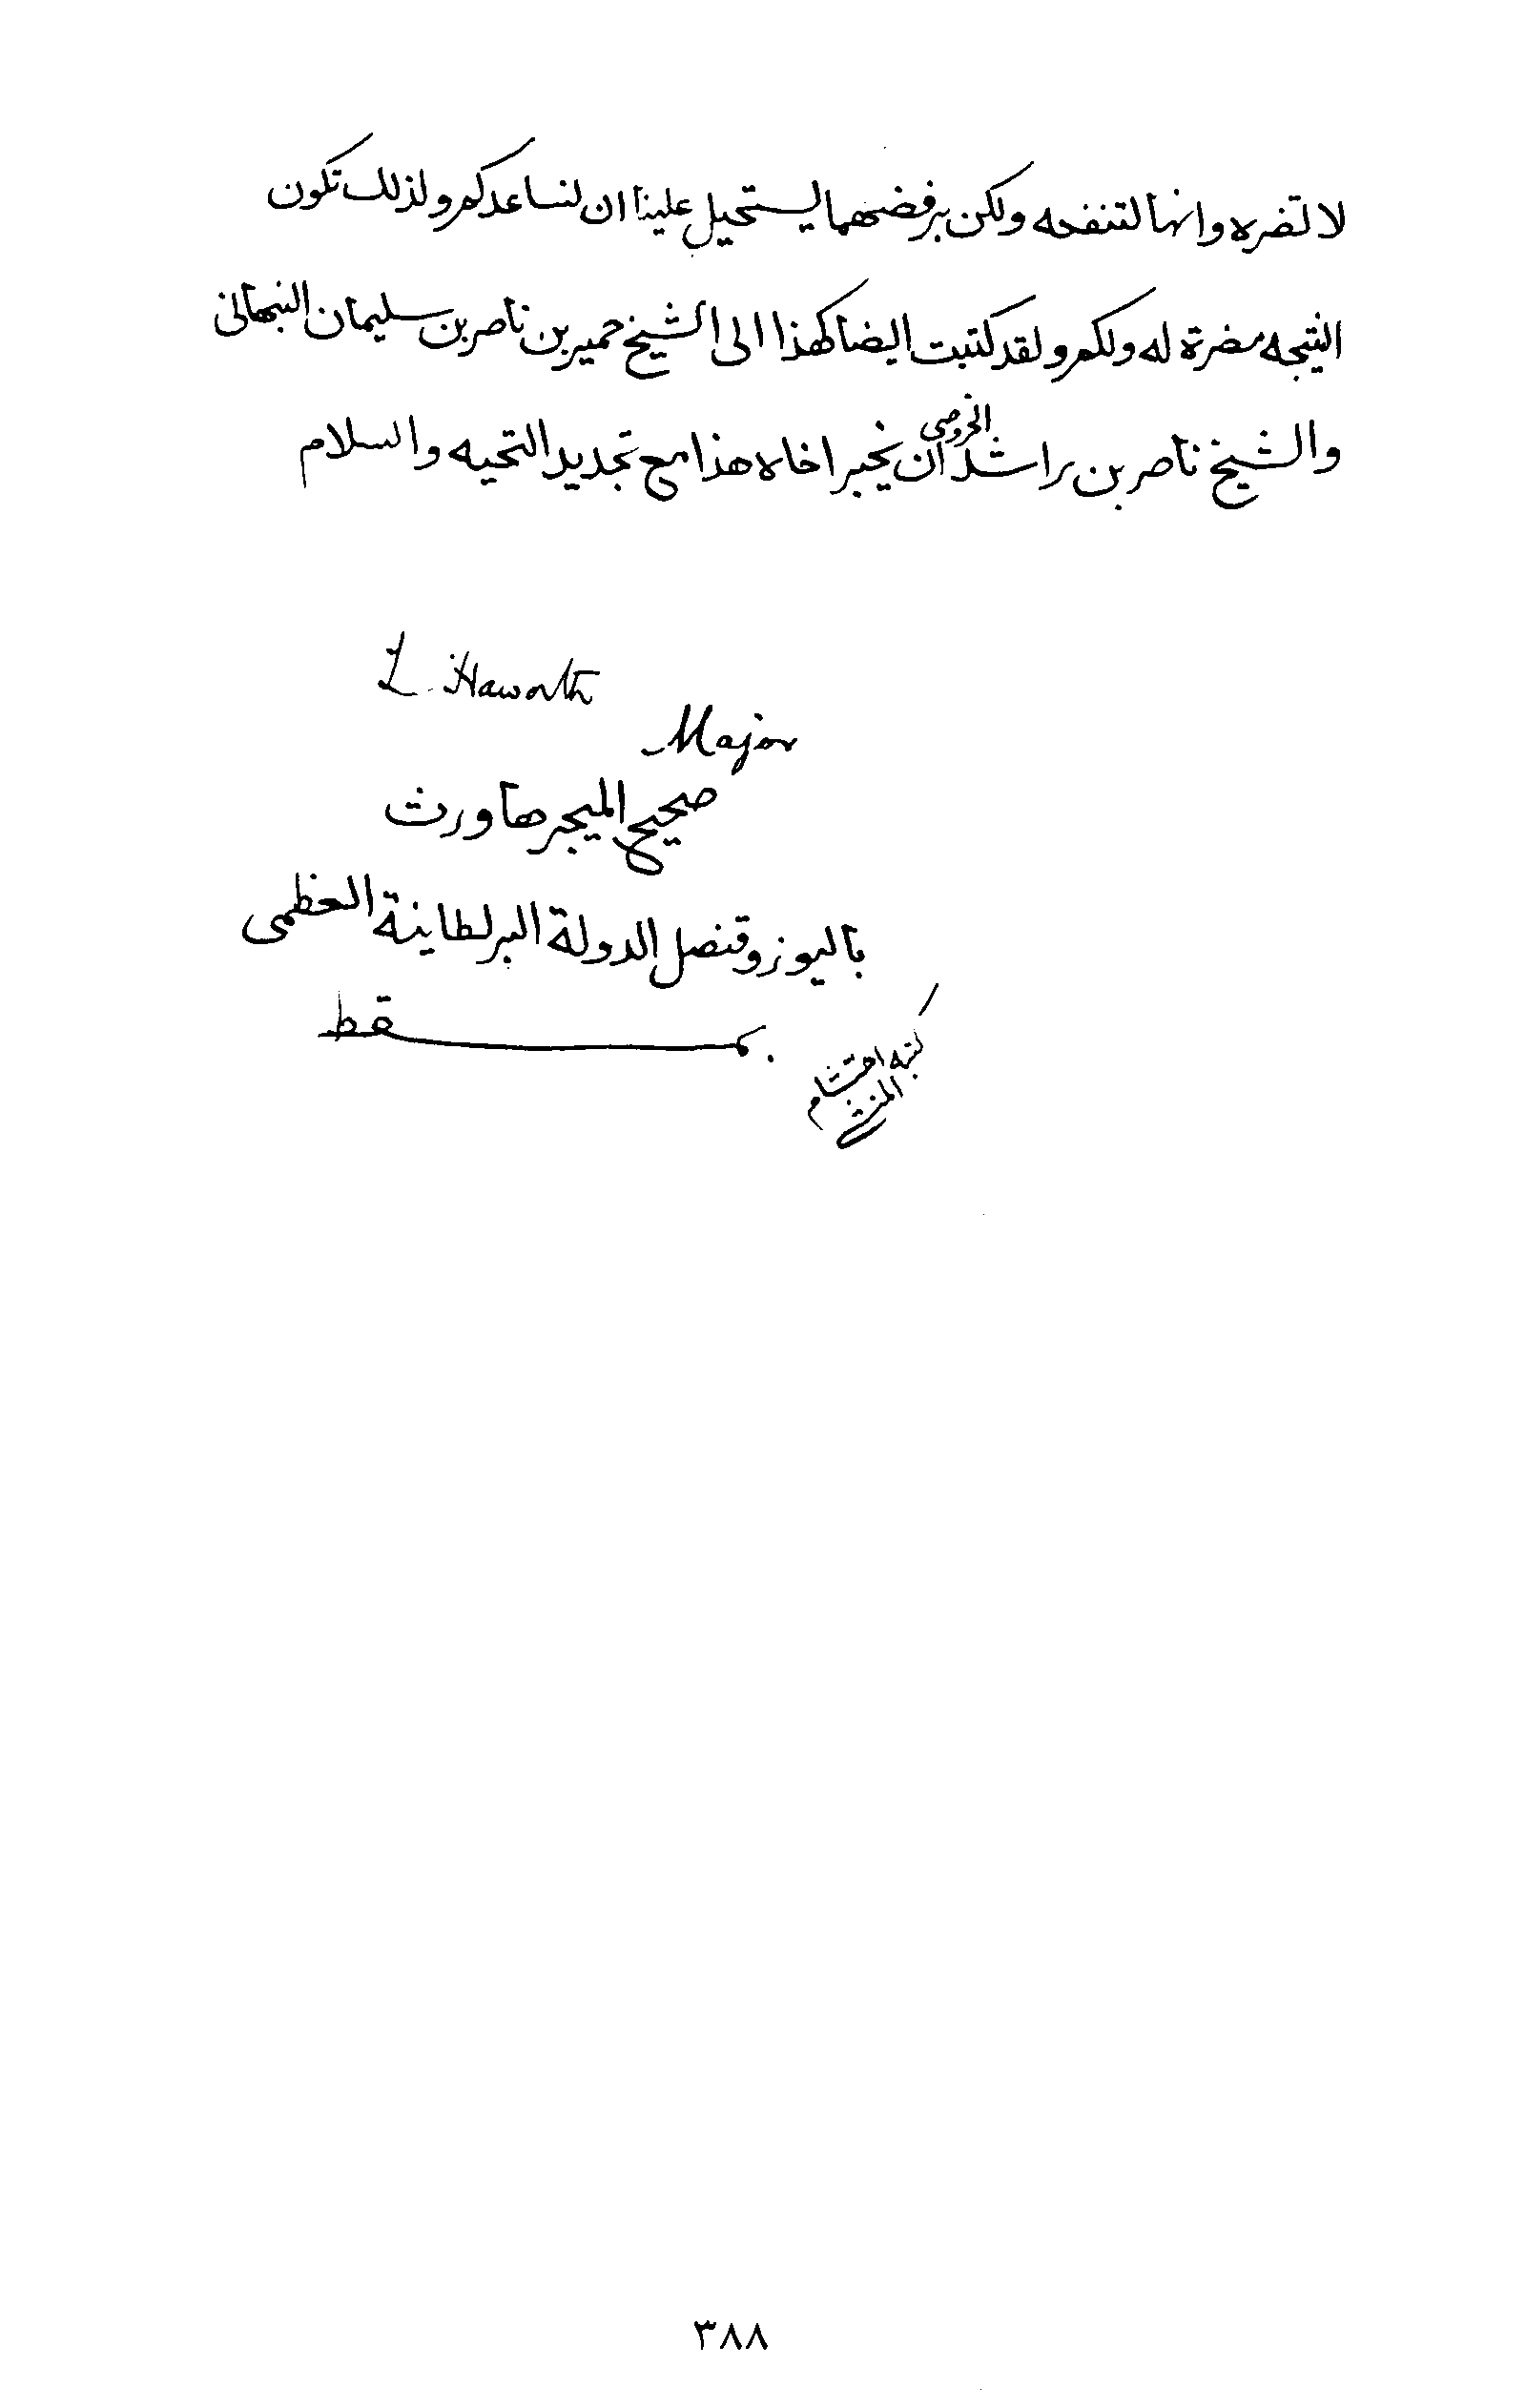 لا تضره وانها لتنفعه ولكن برفضهما يستحيل علينا ان نساعدكم ولذلك تكون
النتيجه مضرة له ولكم ولقد كتبت ايضا كهذا الى الشيخ حمير بن ناصر بن سليمان النبهاني
والشيخ ناصر بن راشد الخروصي ان يخبر اخاه هذا مع تجديد التحيه والسلام
L. Haworth
Major
صحيح الميجر هاورث
باليوز وقنصل الدولة البرطانية العظمى
بمسقط
كتبه احتشام
المنشي
٣٨٨